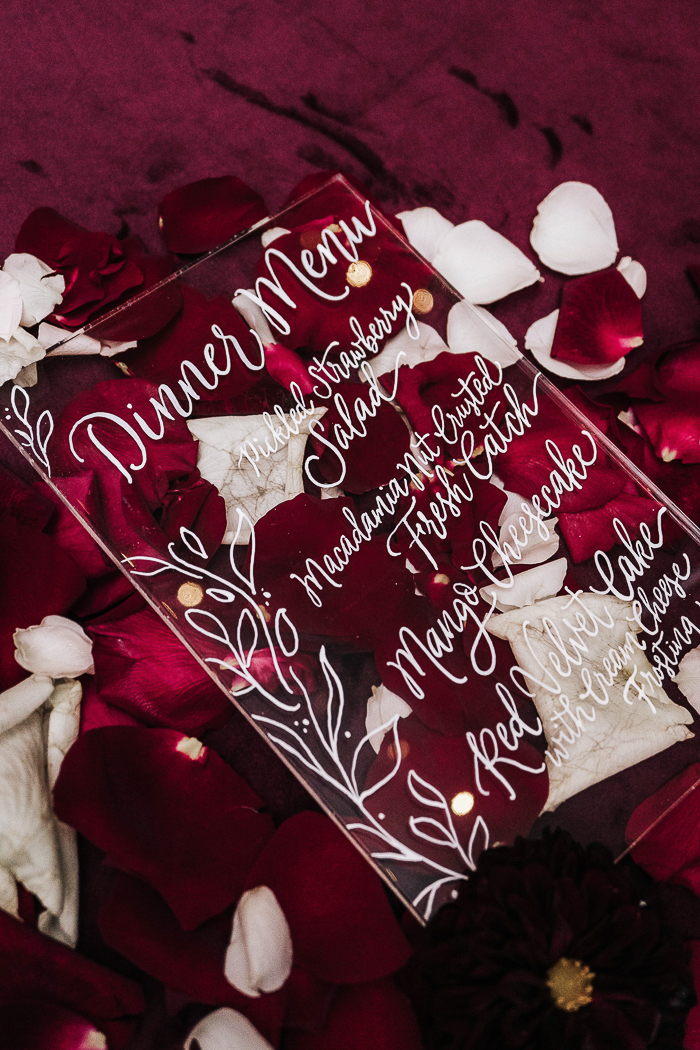 Dinner Menu
Pickled Strawberry
Salad
Macadamia Nut Crusted
Fresh Catch
Mango Cheesecake
Red Velvet Cake
with Cream Cheese
Frosting